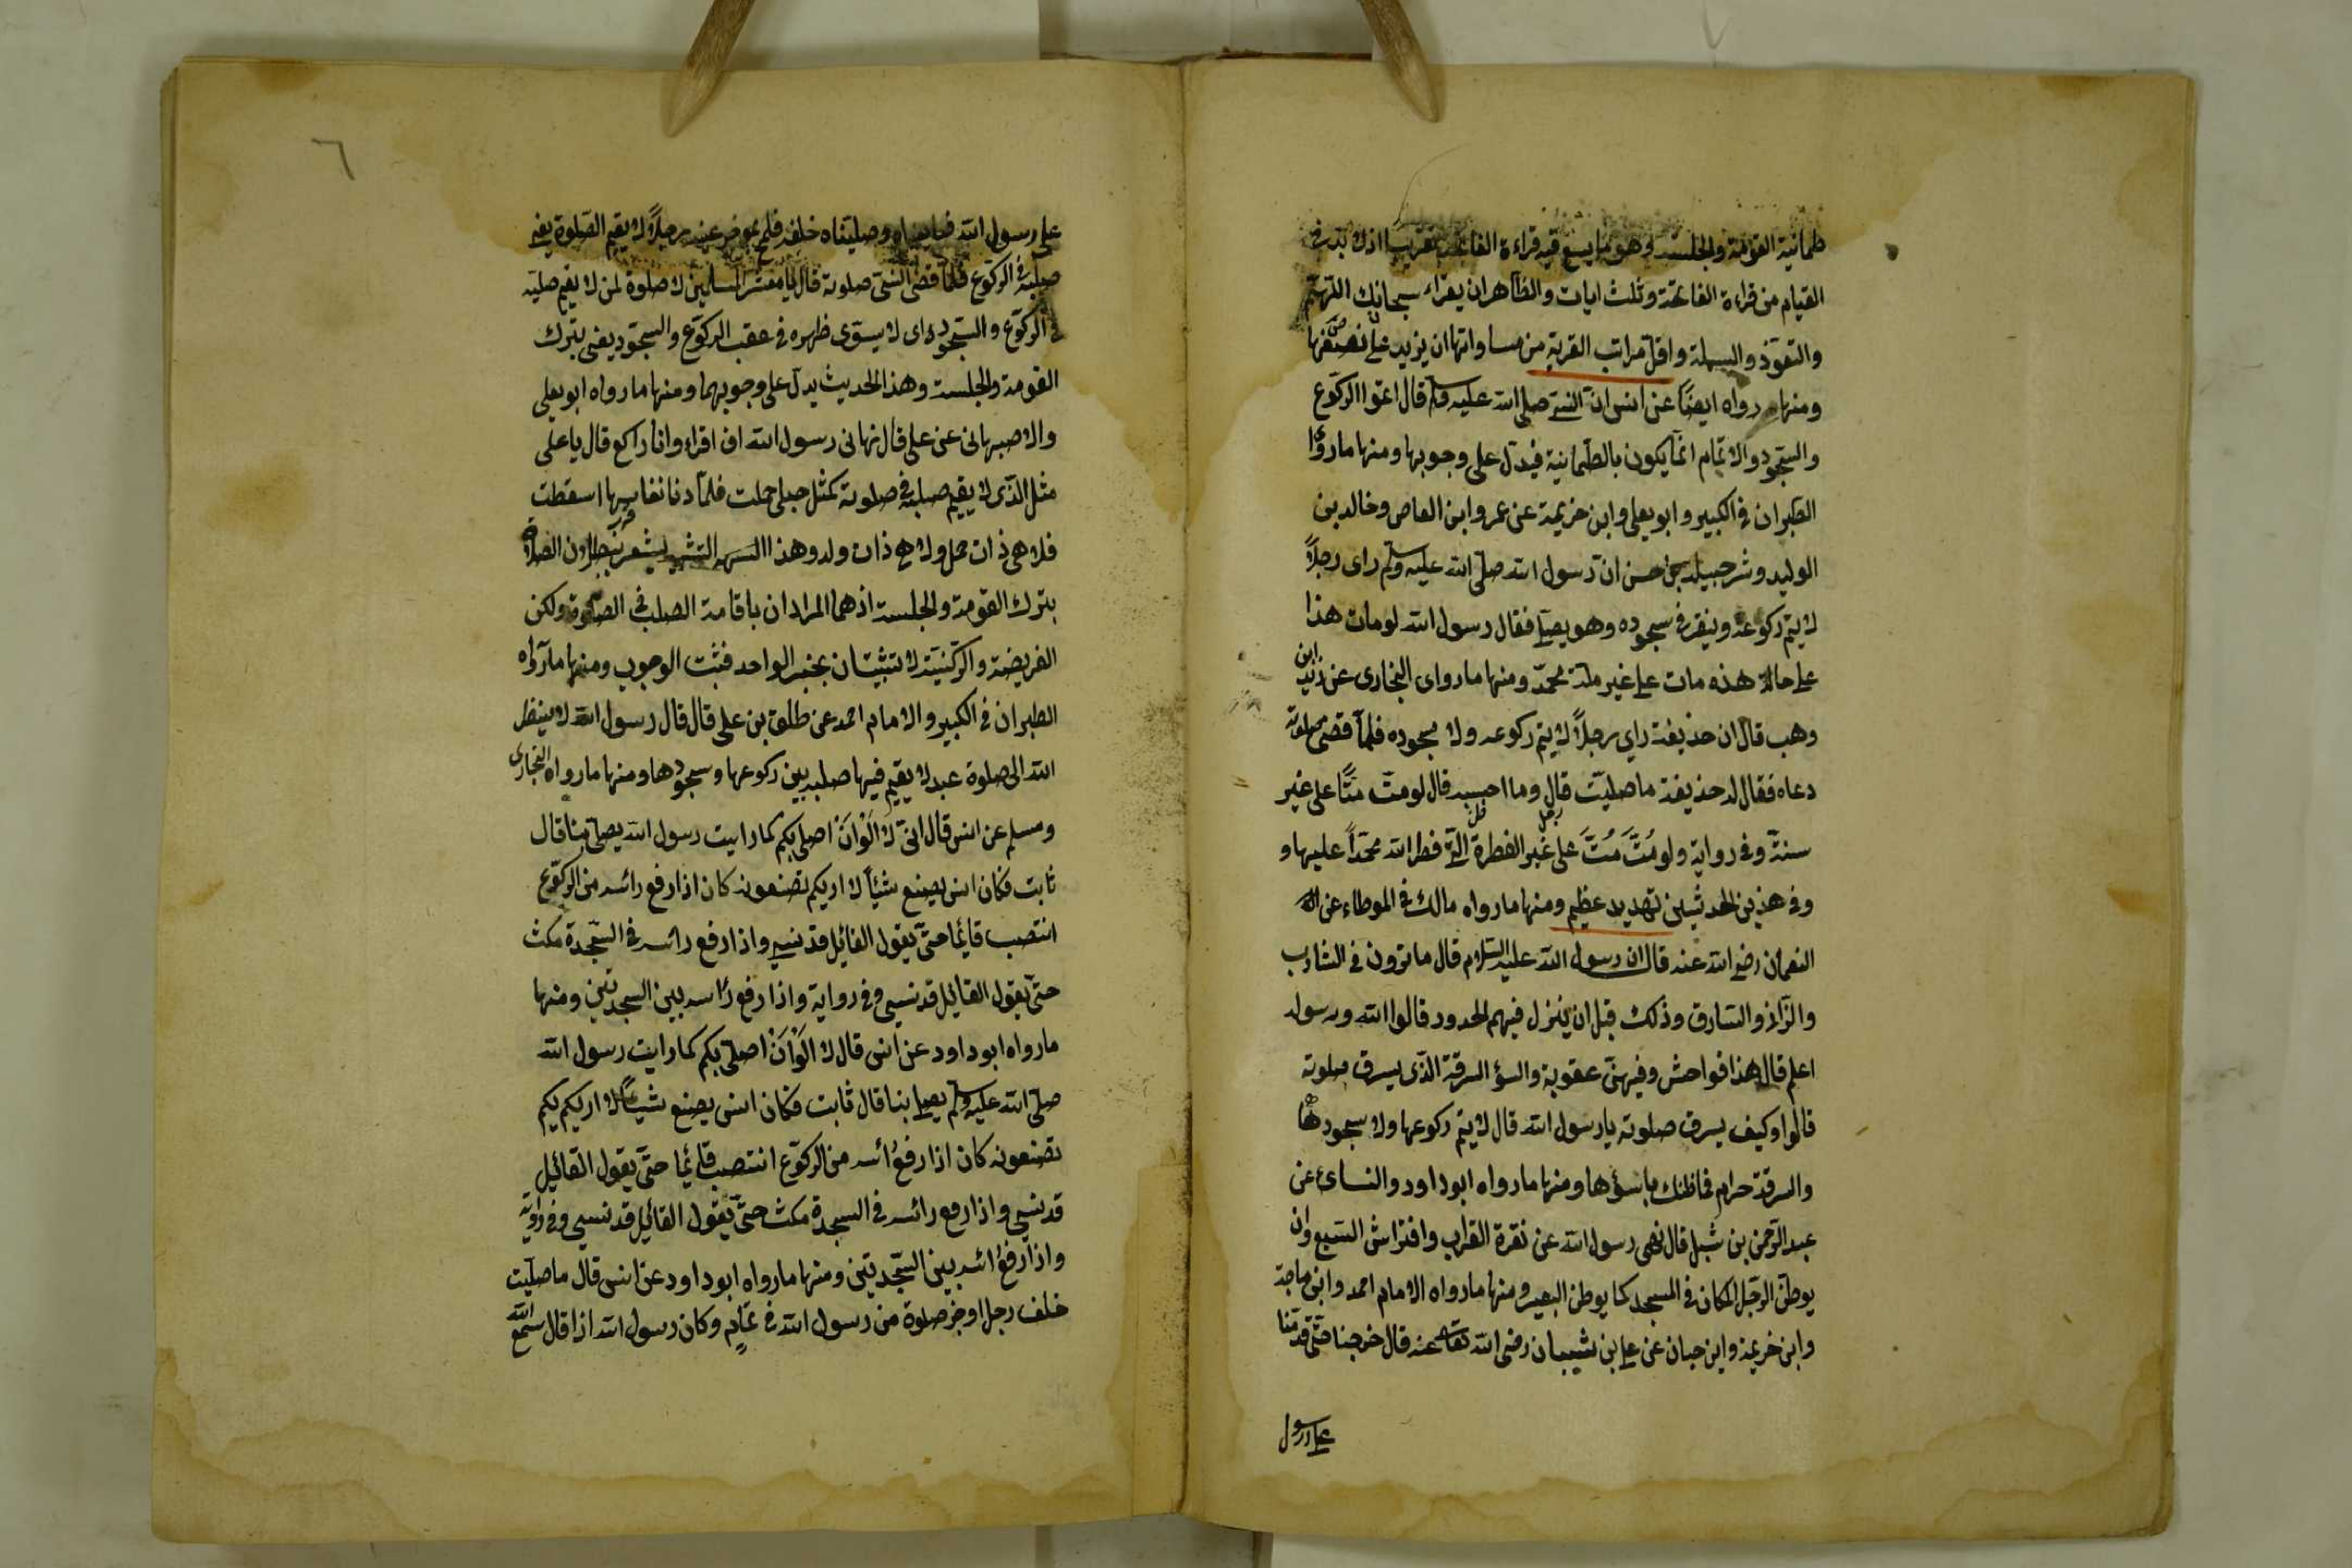 طمانية القومة والجلسة هو ما يسع فيه قراءة الفاتحة تقريبا اذ لا بد في
القيام من قراءة الفاتحة وثلث ايات والظاهر ان يقراء سبحانك اللهم
والتعوذ والبسملة واقل مراتب القربة من مساواتها ان يزيد على نصفها
ومنها رواه ايضا عن انس ان النبي صلى الله عليه وسلم قال اتموا الركوع
والسجود والاتمام انما يكون بالطمانية فيدل على وجوبها ومنها ما روا
الطبران في الكبير وابو يعلى وابن خزيمة عن عمرو ابن العاص وخالد بن
الوليد وشرحبيل بن حسن ان رسول الله صلى الله عليه وسلم راى رجلاً
لا يتم ركوعه وينقر في سجوده وهو يصلي فقال رسول الله لو مات هذا
على حالة هذه مات على غير ملة محمد ومنها ما رواى البخارى عن زيد ابن
وهب قال ان حذيفة راي رجلاً لا يتم ركوعه ولا سجوده فلما قضى صلوته
دعاه فقال له حذيفة ما صليت قال وما احسبه قال لو مت متّا على غير
سنة وفي رواية ولو مُتَّ مُتَّ على غير الفطرة التي فطر الله محمداً عليها و
وفي هذين الحديثين تهديد عظيم ومنها ما رواه مالك في الموطاء عن
النعمان رضي الله عنه قال ان رسول الله عليه السلام قال ما ترون في الشارب
والزاني والسارق وذلك قبل ان ينزل فيهم الحدود قالوا الله ورسوله
اعلم قال هذا فواحش وفيهن عقوبة والسؤ السرقة الذى يسرق صلوته
قالوا وكيف يسرق صلوته يا رسول الله قال لا يتم ركوعها ولا سجودها
والسرقة حرام فما ظنك باسؤها ومنها ما رواه ابو داود والنسائ عن
عبد الرحمن بن شبل قال نهى رسول الله عن نقرة الغراب وافتراش السبع وان
يوطن الرجل المكان في المسجد كما يوطن البعير ومنها ما رواه الامام احمد وابن ماجة
وابن خزيمة وابن حبان عن على بن شيبان رضى الله تعالى عنه قال خرجنا حتى قدمنا
على رسول
٦
على رسول الله فبايعناه وصليناه خلفه فلمح بموخر عينه رجلاً لا يقيم الصلوة يعني
صلبه في الركوع فلما قضى النبي صلوته قال يا معشر المسلمين لا صلوة لمن لا يقيم صلبه
في الركوع والسجود اى لا يستوى ظهره في عقب الركوع والسجود يعني بترك
القومة والجلسة وهذا الحديث يدل على وجوبهما ومنها ما رواه ابو يعلى
والاصبهانى عن على قال نهانى رسول الله ان اقراء وانا راكع قال يا على
مثل الذى لا يقيم صلبه في صلوته كمثل حبلى حملت فلما دنا نفاسها اسقطت
فلا هى ذات حمل ولا هي ذات ولد وهذا التشبيه يشعر بطلان الصلاة
بترك القومة والجلسة اذ هما المرادان باقامة الصلب في الصلوة ولكن
الفريضة والركنية لا تثبتان بخبر الواحد فثبت الوجوب ومنها ما رواه
الطبران في الكبير والامام احمد عن طلق بن على قال قال رسول الله لا ينظر
الله الى صلوة عبد لا يقيم فيها صلبه بين ركوعها وسجودها ومنها ما رواه البخارى
ومسلم عن انس قال انى لا اَلَوْ اَنْ اصلى بكم كما رايت رسول الله يصلى بنا قال
ثابت فكان انس يصنع شيئاً لا اريكم تصنعونه كان اذا رفع رائسه من الركوع
انتصب قائما حتى يقول القائيل قد نسي واذا رفع رائسه في السجدة مكث
حتى يقول القائيل قد نسى وفي رواية واذا رفع رأسه بين السجدتين ومنها
ما رواه ابو داود عن انس قال لا اَلَوْ اَنْ اصلى بكم كما رايت رسول الله
صلى الله عليه وسلم يصلي بنا قال ثابت فكان انس يصنع شيئاً لا اريكم يكم
تصنعونه كان اذا رفع رائسه من الركوع انتصب قائما حتى يقول القائيل
قد نسي واذا رفع رائسه في السجدة مكث حتى يقول القائيل قد نسي وفي رواية
واذا رفع رائسه بين السجدتين ومنها ما رواه ابو داود عن انس قال ما صليت
خلف رجل اوجز صلوة من رسول الله في تمام وكان رسول الله اذا قال سمع الله